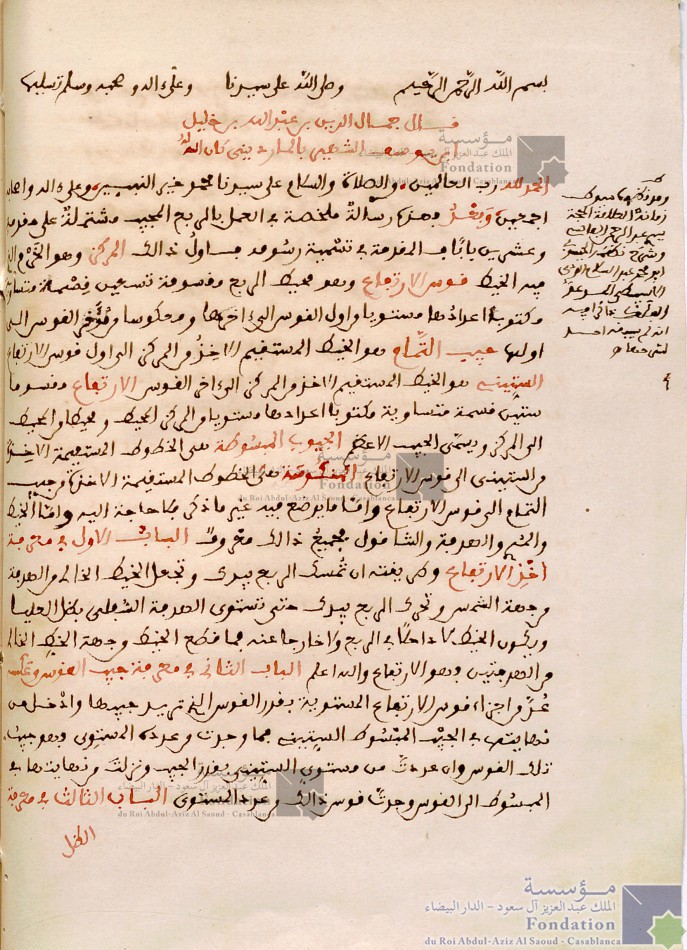 بسم الله الرحمن الرحيم وصلى الله على سيدنا وعلى اله وصحبه وسلم تسليما
قال جمال الدين بن عبد الله بن خليل
ابن يوسف الشهير بالمارديني كان الله
الحمد لله رب العالمين والصلاة والسلام على سيدنا محمد خير النبيين وعلى اله واصحابه
اجمعين وبعد فهذه رسالة ملخصة في العمل بالربع المجيب مشتملة على مقدمة
وعشرين بابا المقدمة في تسمية رسومه فاول ذالك المركز وهو الخرم الذي
فيه الخيط قوس الارتفاع وهو محيط الربع مقسومة تسعين قسمة متساوية
مكتوبة اعدادها مستويا من اول القوس الى اخرها ومعكوسا من اخر القوس الى
اولها جيب التمام هو الخيط المستقيم الاخذ من المركز الى اول قوس الارتفاع
الستيني هو الخيط المستقيم الاخذ من المركز الى اخر القوس الارتفاع مقسوما
ستين قسمة متساوية مكتوبا اعدادها مستويا من المركز للمحيط ومن المحيط
الى المركز ويسمى الجيب الاعظم الجيوب المبسوطة هي الخطوط المستقيمة الاخذة
من الستيني الى قوس الارتفاع المنكوسة هي الخطوط المستقيمة الاخذة من جيب
التمام الى قوس الارتفاع واما ما يوضع فيه غير ما ذكر فلا حاجة اليه واما الخيط
والمري والهدفة والشاقول فجميع ذالك معروف الباب الاول في معرفة
اخذ الارتفاع
من جهة الشمس وتحرك الربع بيدك حتى تستوي الهدفة السفلى بظل العليا
ويكون الخيط لا داخلا في الربع ولا خارجا عنه فما قطع الخيط من جهة الخيط الخالي
من الهدفتين وهو الارتفاع والله اعلم الباب الثاني في معرفة جيب القوس وعكسه
عد من اجزاء قوس الارتفاع المستوية بقدر القوس التي تريد جيبها وادخل من
نهايتها في الجيب المبسوط للستيني فما وجدت من عدده المستوي وهو جيب
تلك القوس وان عددت من مستوي الستيني بقدر الجيب ونزلت من نهايتها في
المبسوط الى القوس وجدت قوس ذالك من عدد المستوي الباب الثالث في معرفة
الظل
مؤسسة
الملك عبد العزيز آل سعود - الدار البيضاء
Fondation
du Roi Abdul-Aziz Al Saoud - Casablanca